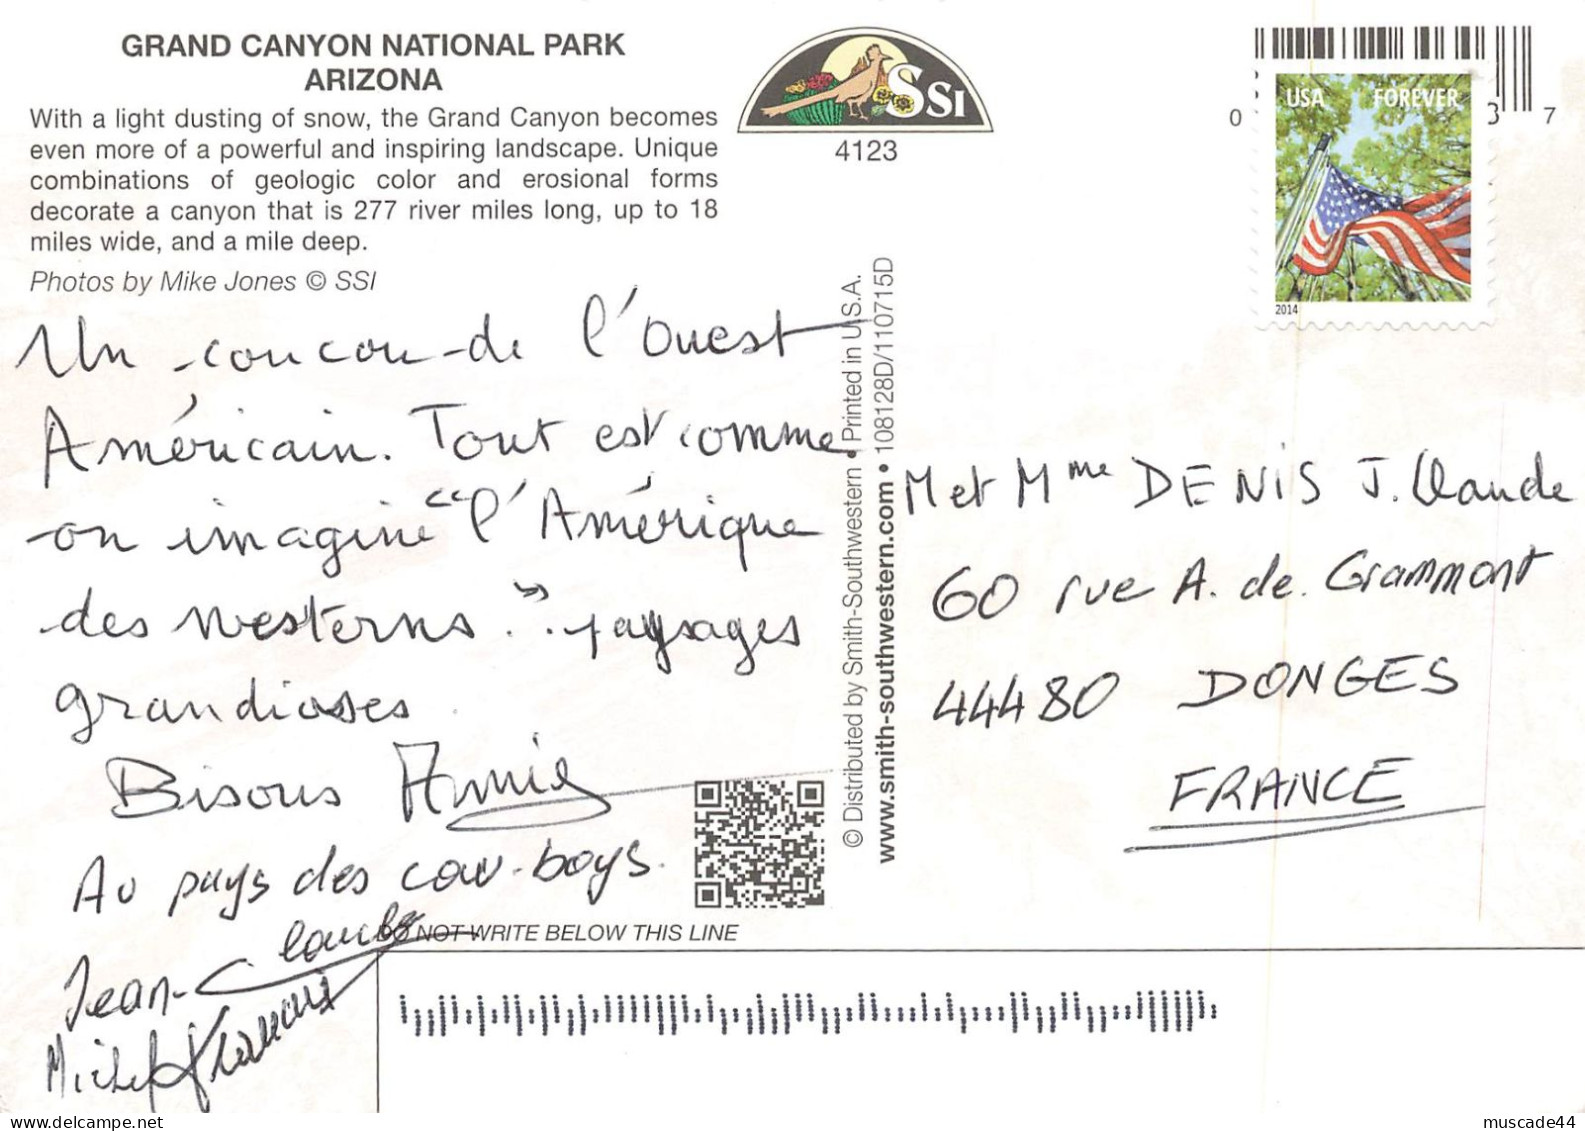 GRAND CANYON NATIONAL PARK
ARIZONA
With a light dusting of snow, the Grand Canyon becomes
even more of a powerful and inspiring landscape. Unique
combinations of geologic color and erosional forms
decorate a canyon that is 277 river miles long, up to 18
miles wide, and a mile deep.
Photos by Mike Jones © SSI
SSI
4123
0 3 7
USA FOREVER
2014
Un coucou de l'Ouest
Américain. Tout est comme
on imagine "l'Amérique
des westerns". paysages
grandioses.
Bisous Annie
Au pays des cow-boys.
Jean-Claude
Michel Françoise
© Distributed by Smith-Southwestern • Printed in U.S.A.
www.smith-southwestern.com • 108128D/110715D
M et Mme DENIS J. Claude
60 rue A. de. Grammont
44480 DONGES
FRANCE
DO NOT WRITE BELOW THIS LINE
www.delcampe.net
muscade44